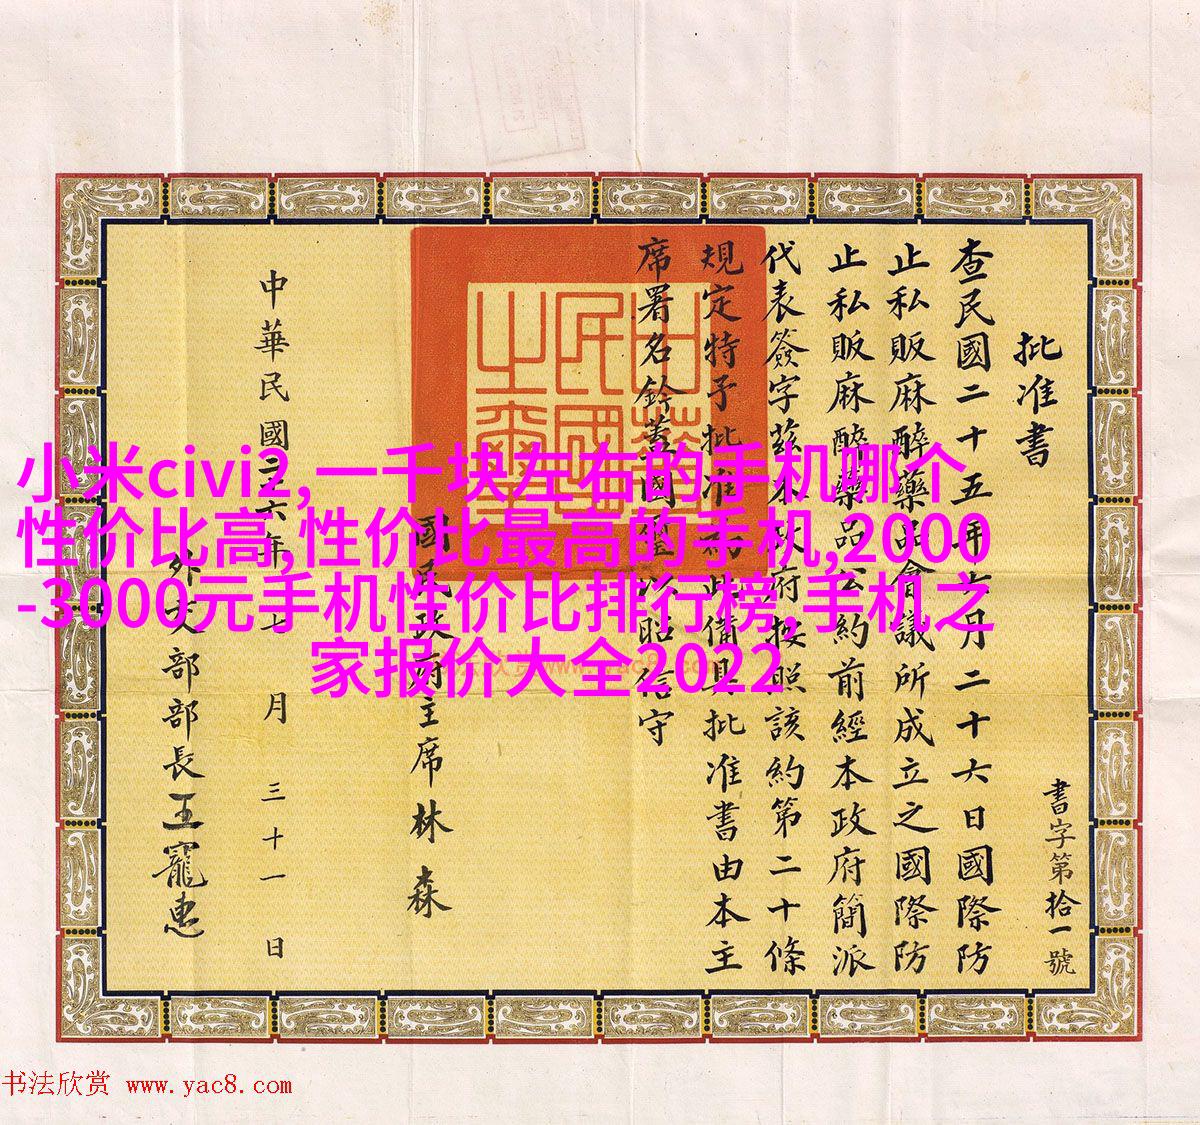 書字第拾一號
批准書
查民國二十五年六月二十六日國際防
止私販麻醉藥品會議所成立之國際防
止私販麻醉藥品公約前經本政府簡派
代表簽字茲本政府按照該約第二十條
規定特予批准為此備具批准書由本主
席署名鈐蓋國璽以昭信守
中華民國之璽
國民政府主席林森
中華民國六年七月三十一日
外交部部長王寵惠
小米civi2,一千块左右的手机哪个
性价比高,性价比最高的手机,2000
-3000元手机性价比排行榜,手机之
家报价大全2022
书法欣赏 www.yac8.com